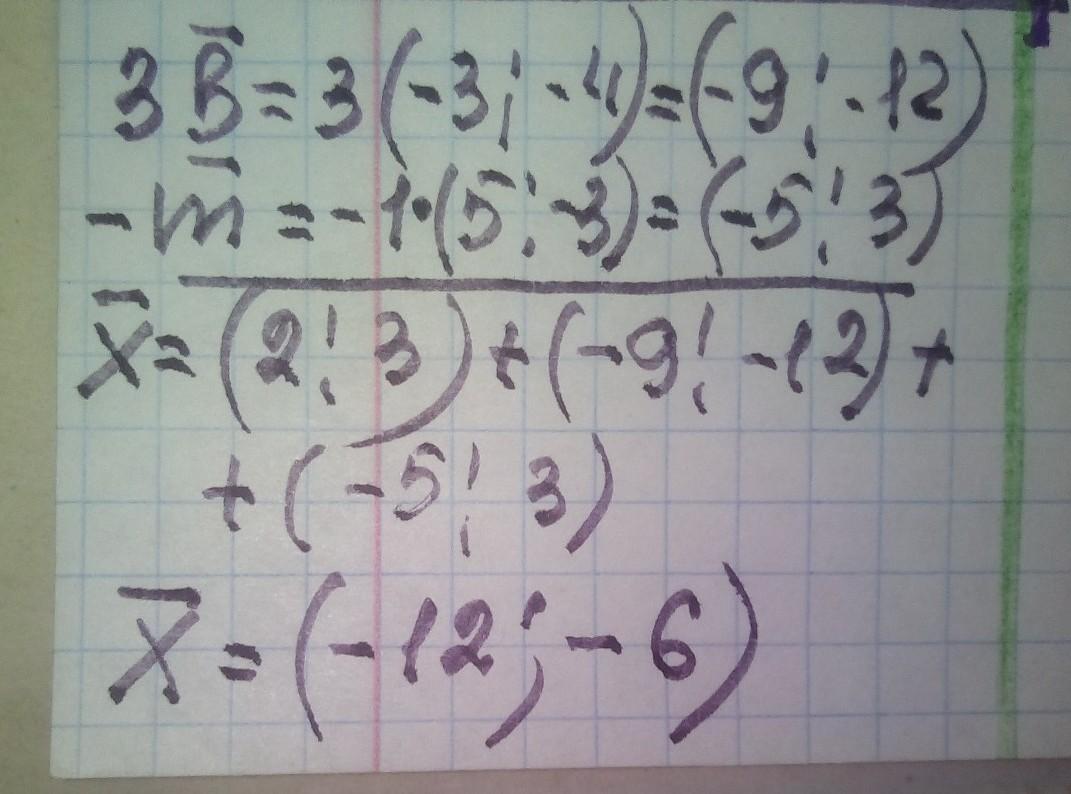 3B̅ = 3(-3; -4) = (-9; -12)
-m̅ = -1·(5; -3) = (-5; 3)
x̅ = (2; 3) + (-9; -12) +
+ (-5; 3)
x̅ = (-12; -6)